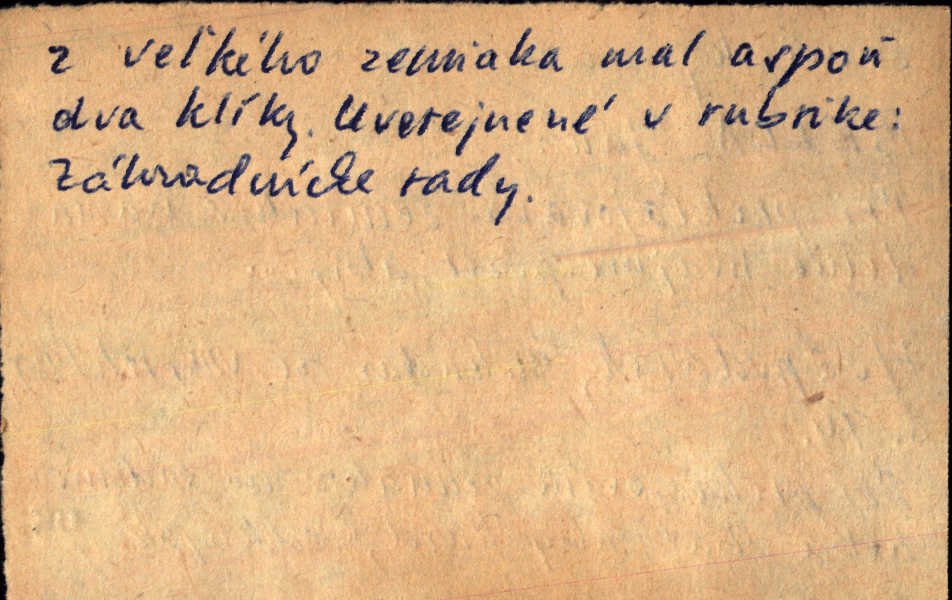 z veľkého zemiaka mal aspoň
dva klíky. Uverejnené v rubrike:
Záhradnícke rady.